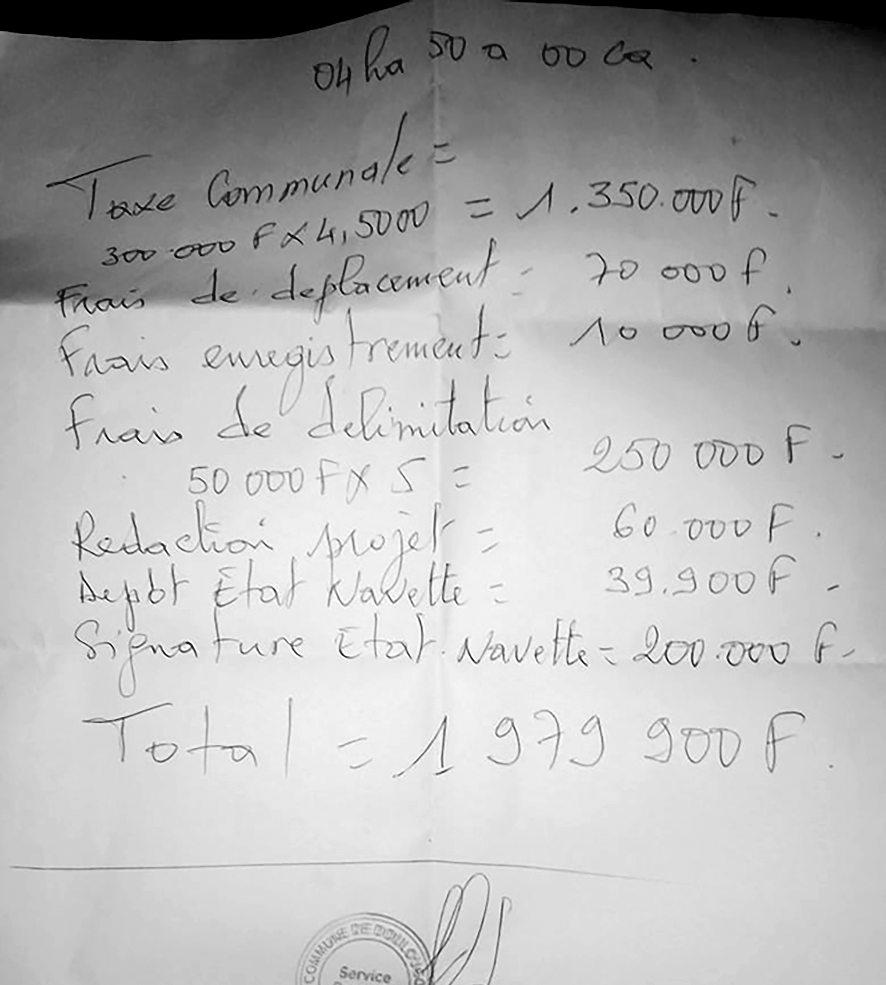 04 ha 50 a 00 Ca.
Taxe Communale =
300.000 F x 4,5000 = 1.350.000 F.
Frais de deplacement = 70 000 F.
Frais enregistrement = 10 000 F.
Frais de delimitation
50 000 F x 5 = 250 000 F -
Redaction projet = 60.000 F.
Depôt État Navette = 39.900 F -
Signature Etat Navette = 200.000 F -
Total = 1 979 900 F.
COMMUNE DE
Service